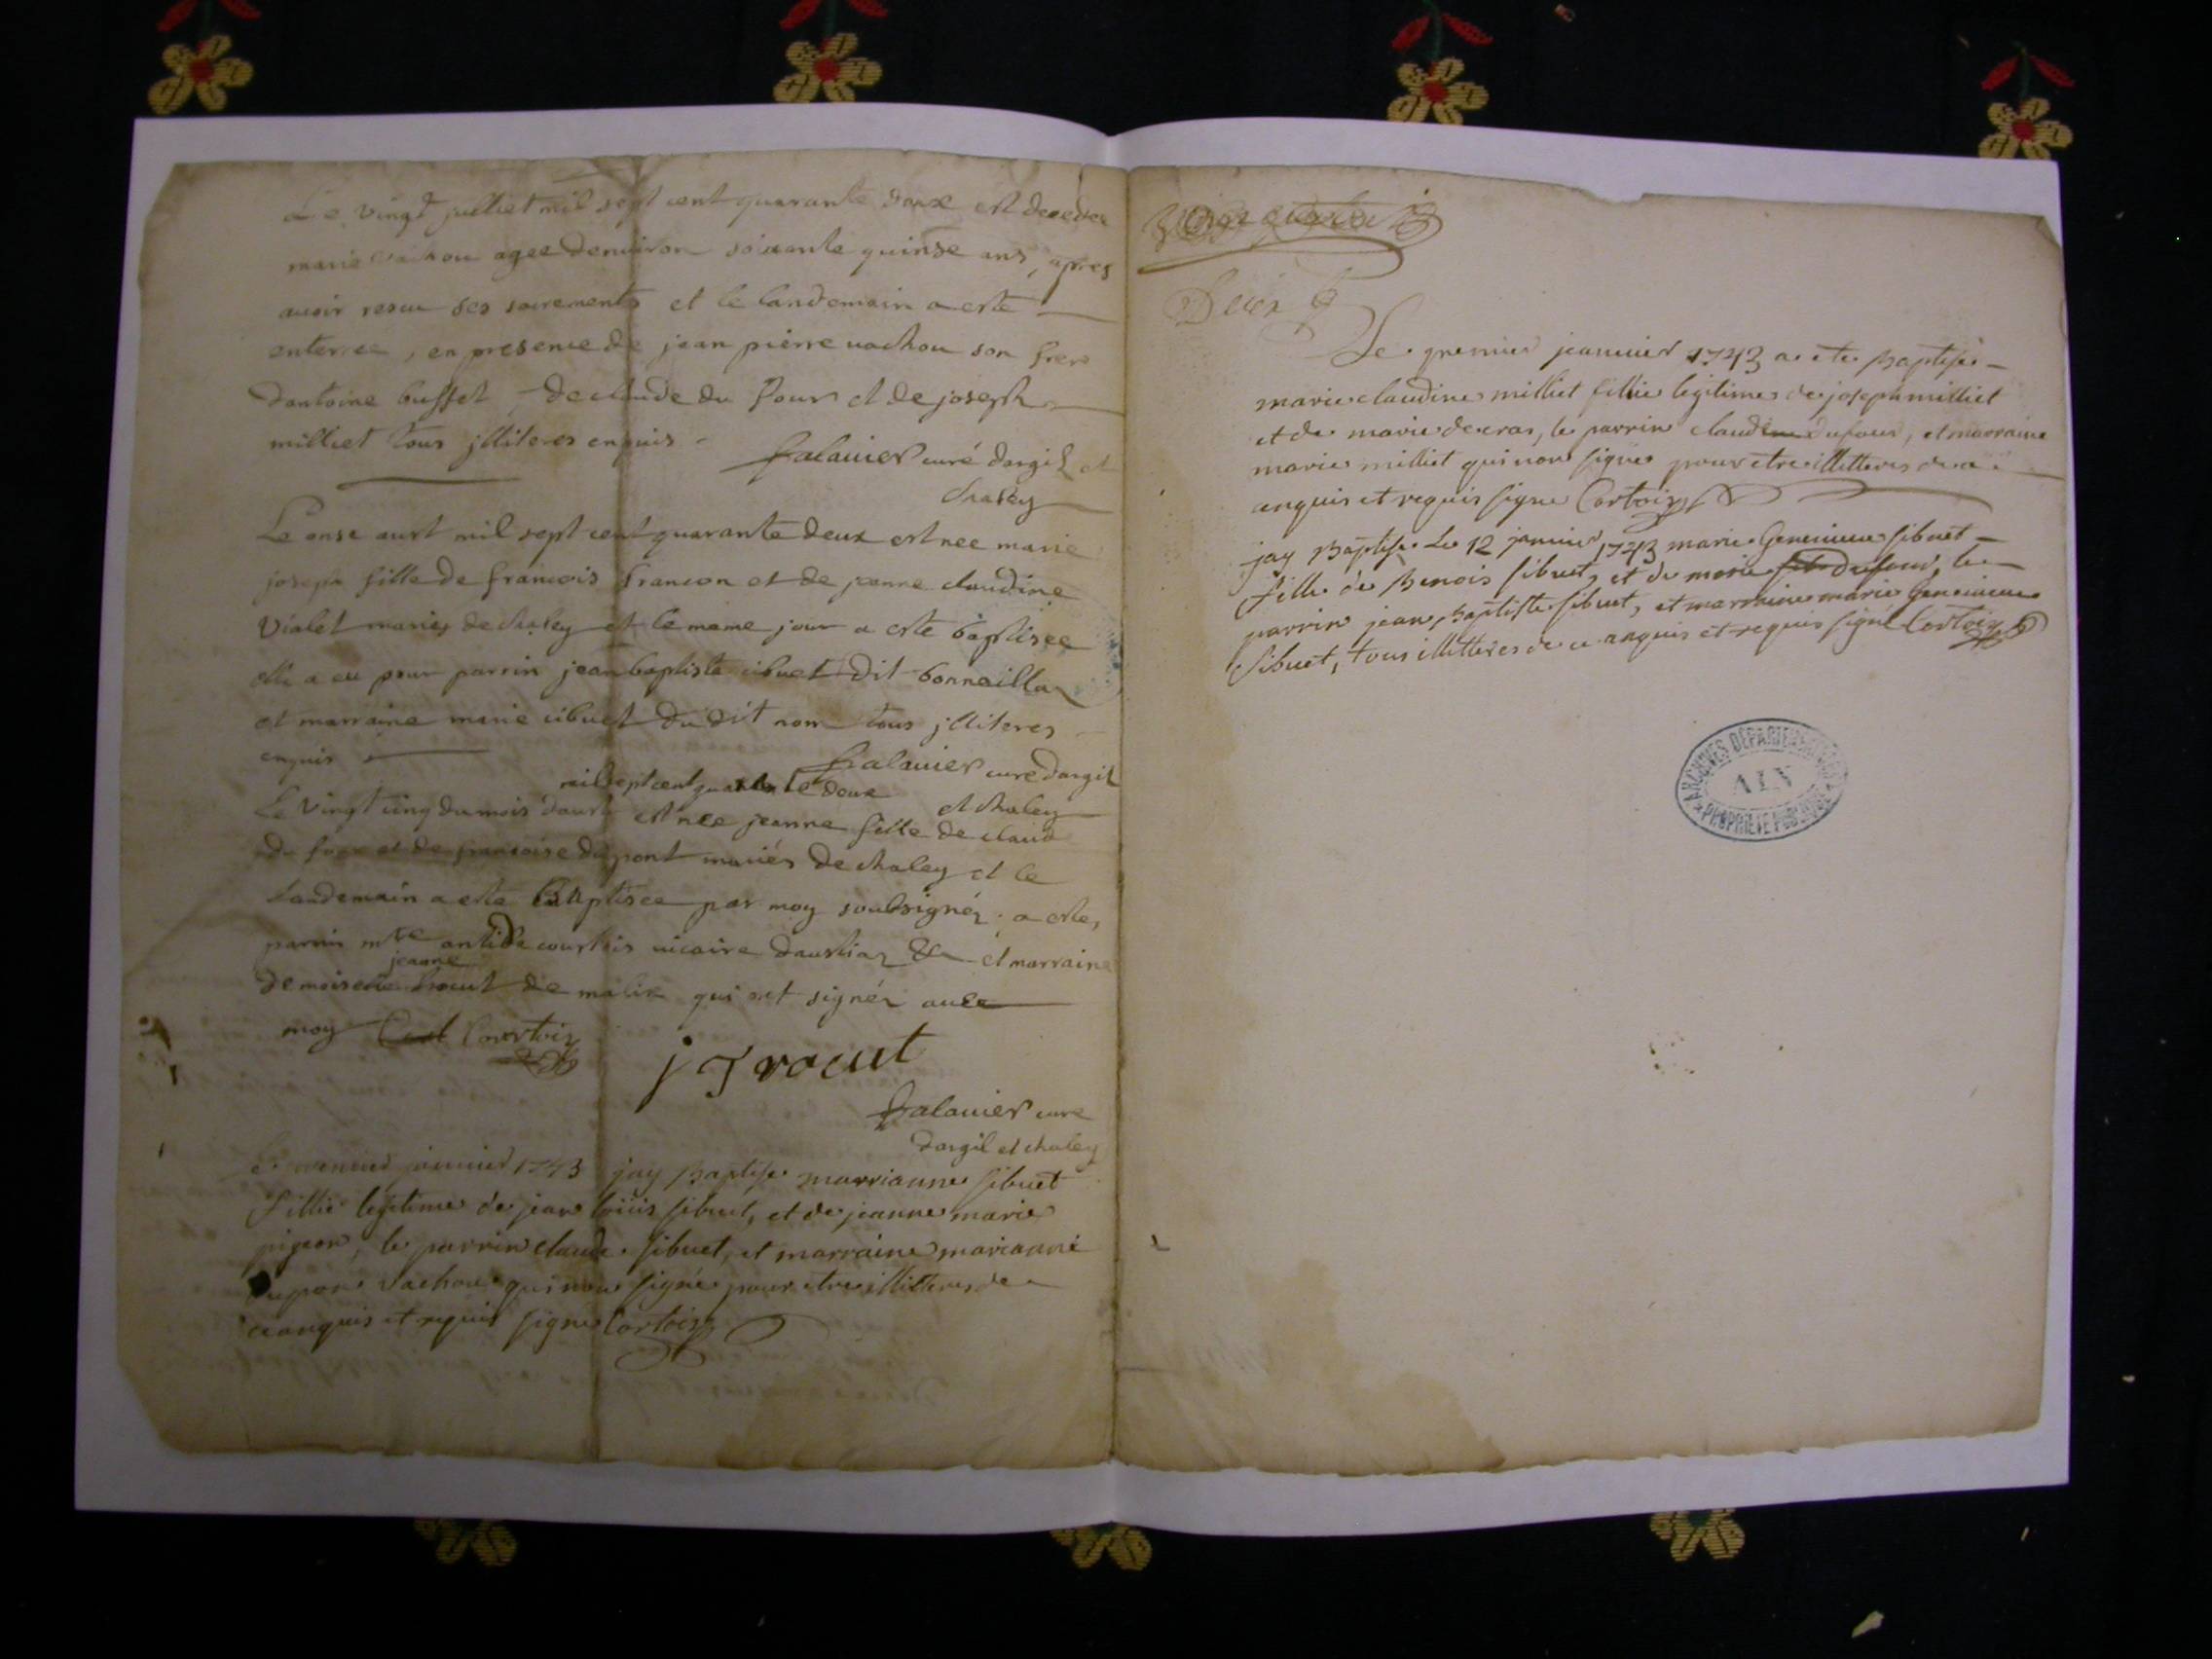 Le vingt julliet mil sept cent quarante deux est decedee
marie vachou agee denuiron soixante quinse ans, apres
auoir rescu ses sacrements et le landemain a este
enterree, en presence de jean pierre uachou son frere
dantoine buffet, de claude du four et de joseph
milliet tous jlliteres enquis
falauier curé dargil et
chaley
Le onse aust mil sept cent quarante deux est nee marie
joseph fille de francois francon et de jeanne claudine
Vialet mariez de chaley et le mame jour a este baptisee
elle a eu pour parrin jean baptiste sibuet dit bonnailla
et marraine marie sibuet du dit nom tous jlliteres
enquis
falauier cure dargil
et chaley
mil sept cent quarante deux
Le vingt cinq du mois daust est nee jeanne fille de claud
du four et de francoise dupont mariés de chaley et le
Landemain a este Baptisee par moy soubsignéz. a este,
parrin mtre antide courtois uicaire et marraine
jeanne
demoiselle trocut de qui ont signéz auec
moy Courtois
j Trocut
falauier cure
dargil et chaley
janvier 1743 jay Baptise marrianne sibuet
fillie legitime de jean louis sibuet, et de jeanne marie
pigeon, le parrin claude sibuet, et marraine marianne
vachou qui nont signés pour etre illitteres de
ce anquis et requis signe Cortois
Le premier jeanvier 1743 a ete Baptisé
marie claudine milliet fillie legitime de joseph milliet
et de marie decras, le parrin claude dufour, et marraine
marie milliet qui nont signés pour etre illitteres de ce
anquis et requis signe Cortois
jay Baptise le 12 janvier 1743 marie Genevieve sibuet
fille de Benois sibuet, et de marie dufour, le
parrin jean Baptiste sibuet, et marraine marie Genevieve
sibuet, tous illitteres de ce anquis et requis signé Cortois
ARCHIVES DEPARTEMENTALES
AIN
PROPRIETE PUBLIQUE